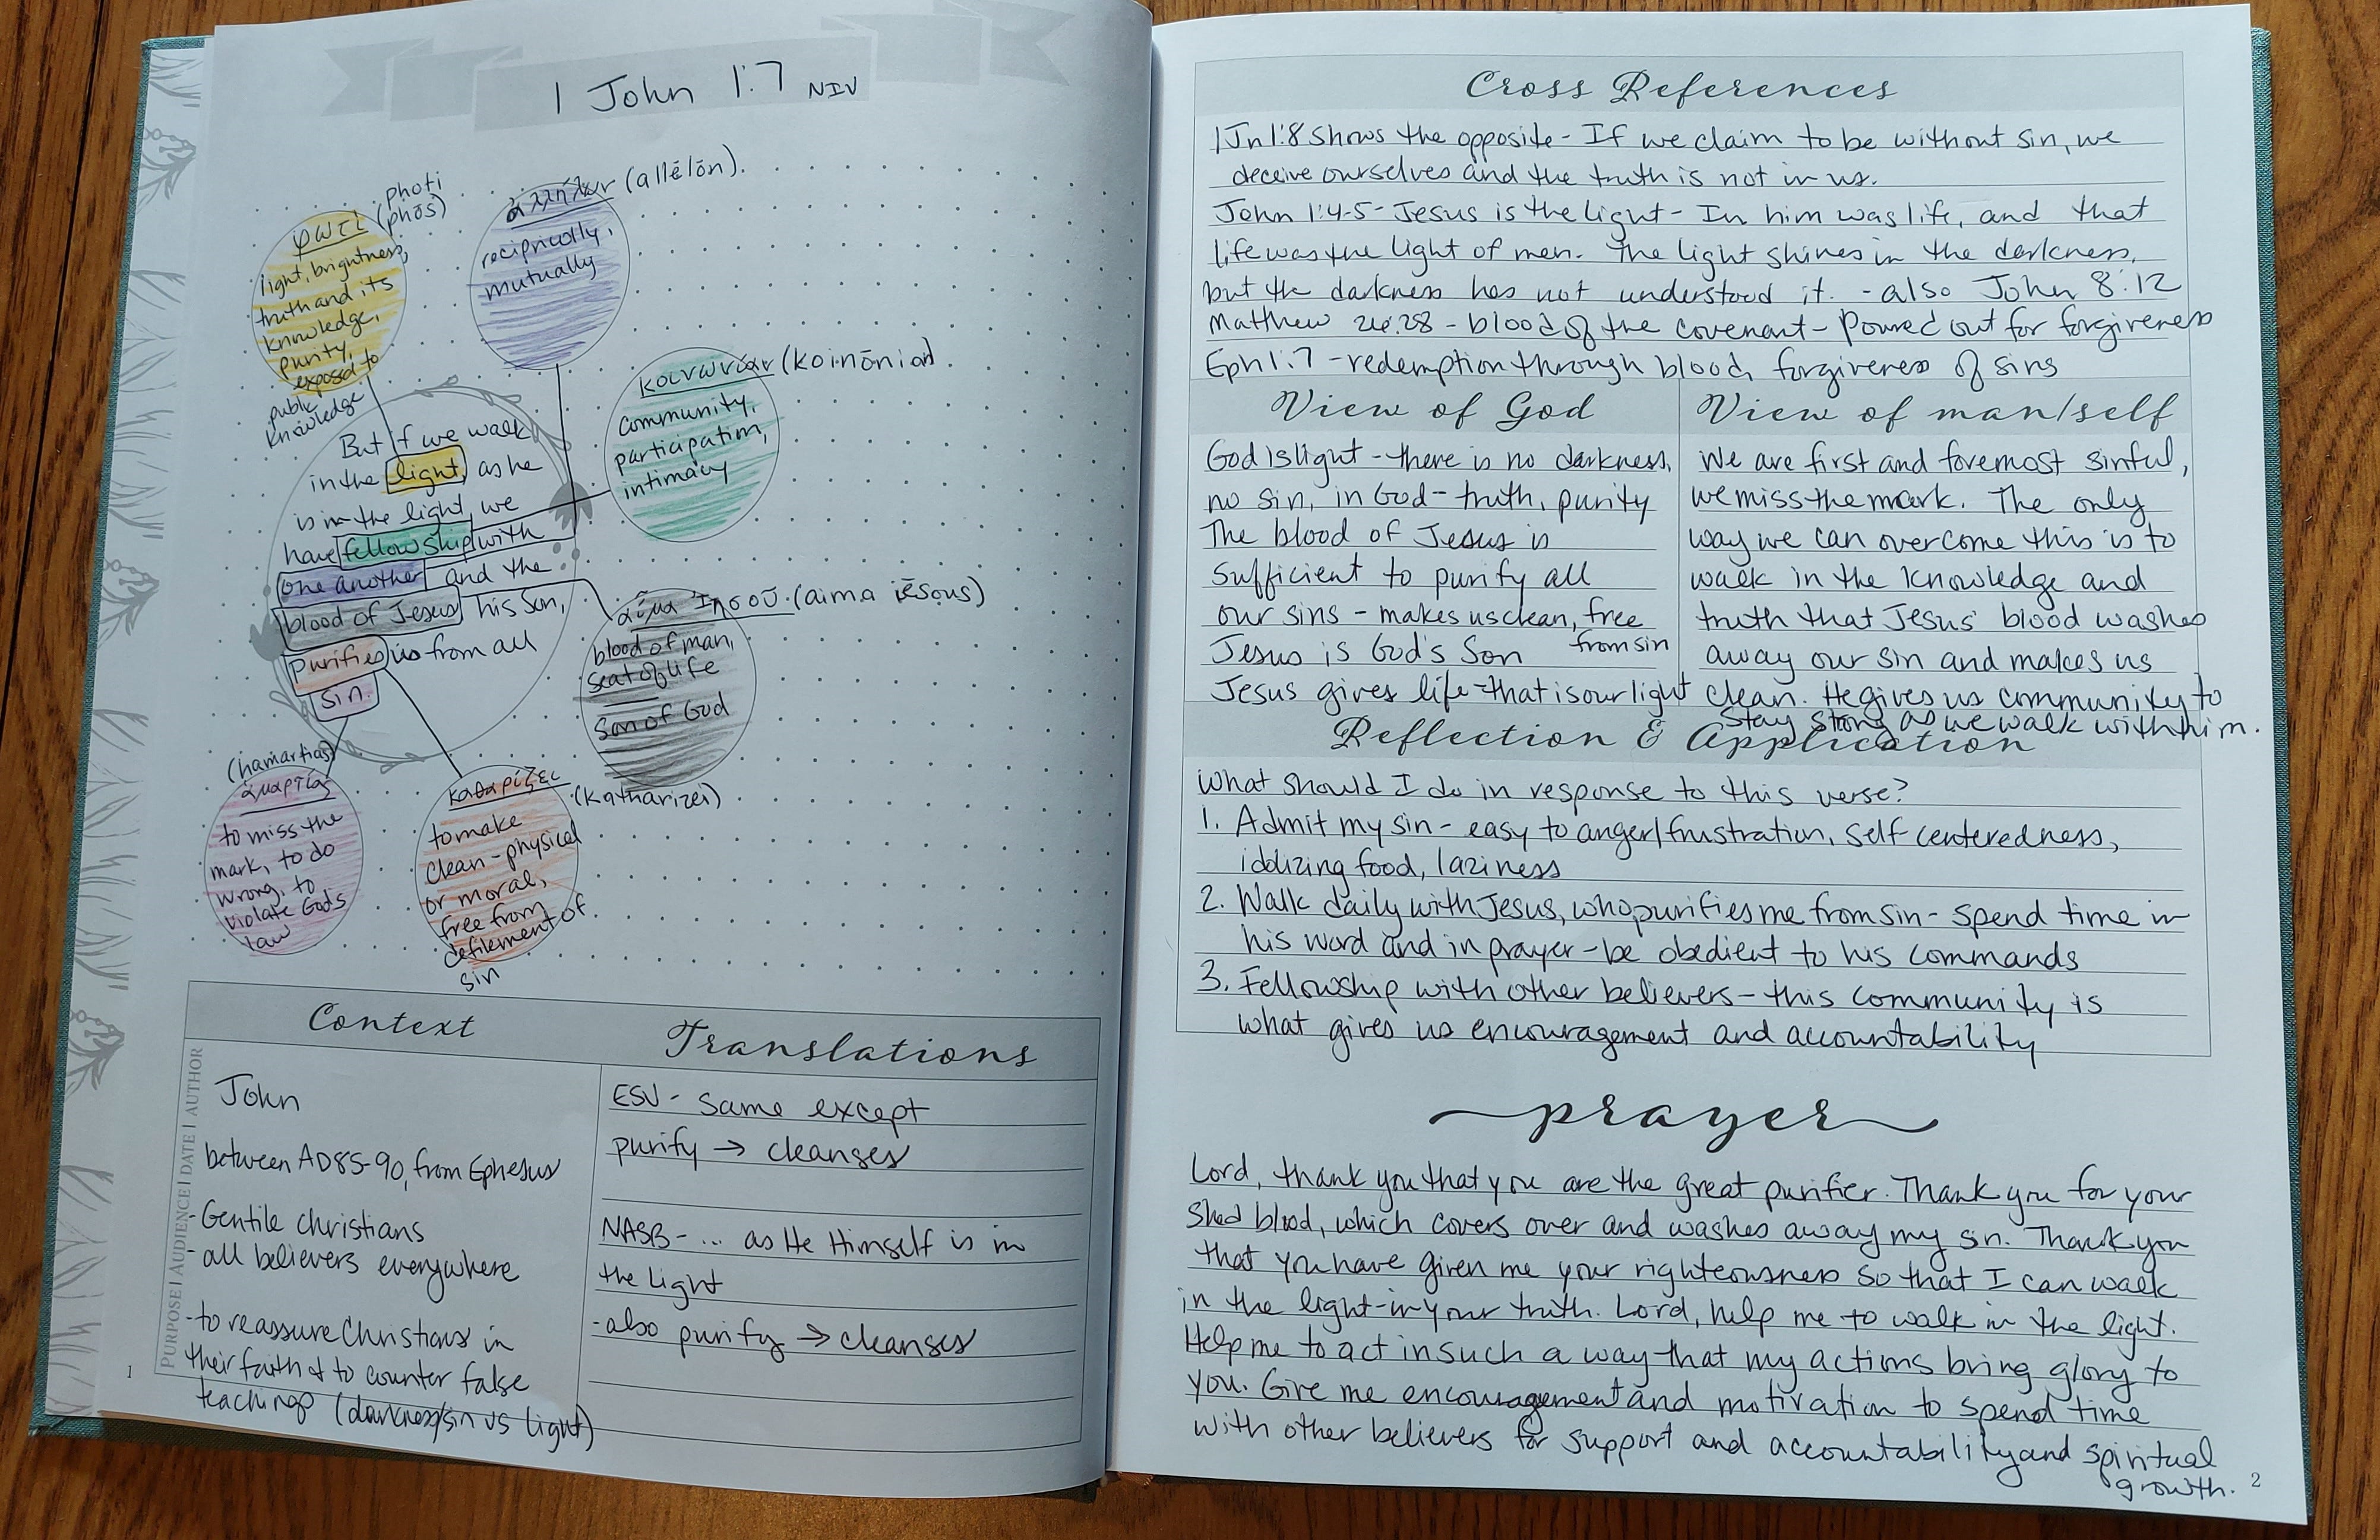 1 John 1:7 NIV
photi
(phōs)
φωτί
light, brightness,
truth and its
knowledge,
purity,
exposed to
public
knowledge
ἀλλήλων (allēlōn)
reciprically,
mutually
κοινωνίαν (koinōnian)
community,
participation,
intimacy
But if we walk
in the light, as he
is in the light, we
have fellowship with
one another and the
blood of Jesus his Son,
purifies us from all
sin.
αἷμα Ἰησοῦ (aima iēsous)
blood of man,
seat of life
Son of God
(hamartias)
ἁμαρτίας
to miss the
mark, to do
wrong, to
violate Gods
law
καθαρίζει
(katharizei)
to make
clean - physical
or moral,
free from
defilement of
sin
Context
PURPOSE | AUDIENCE | DATE | AUTHOR
John
between AD85-90, from Ephesus
- Gentile Christians
- all believers everywhere
- to reassure Christians in
their faith & to counter false
teachings (darkness/sin vs light)
1
Translations
ESV - same except
purify → cleanses
NASB - ... as He Himself is in
the Light
- also purify → cleanses
Cross References
1Jn1:8 shows the opposite - If we claim to be without sin, we
deceive ourselves and the truth is not in us.
John 1:4-5 - Jesus is the light - In him was life, and that
life was the light of men. The light shines in the darkness,
but the darkness has not understood it. - also John 8:12
Matthew 26:28 - blood of the covenant - Poured out for forgiveness
Eph 1:7 - redemption through blood, forgiveness of sins
View of God
God is light - there is no darkness,
no sin, in God - truth, purity
The blood of Jesus is
sufficient to purify all
our sins - makes us clean, free
from sin
Jesus is God's Son
Jesus gives life - that is our light
View of man/self
We are first and foremost sinful,
we miss the mark. The only
way we can overcome this is to
walk in the knowledge and
truth that Jesus' blood washes
away our sin and makes us
clean. He gives us community to
stay strong as we walk with him.
Reflection & Application
What should I do in response to this verse?
1. Admit my sin - easy to anger/frustration, self centeredness,
idolizing food, laziness
2. Walk daily with Jesus, who purifies me from sin - spend time in
his word and in prayer - be obedient to his commands
3. Fellowship with other believers - this community is
what gives us encouragement and accountability
prayer
Lord, thank you that you are the great purifier. Thank you for your
shed blood, which covers over and washes away my sin. Thank you
that you have given me your righteousness so that I can walk
in the light - in your truth. Lord, help me to walk in the light.
Help me to act in such a way that my actions bring glory to
you. Give me encouragement and motivation to spend time
with other believers for support and accountability and spiritual
growth.
2